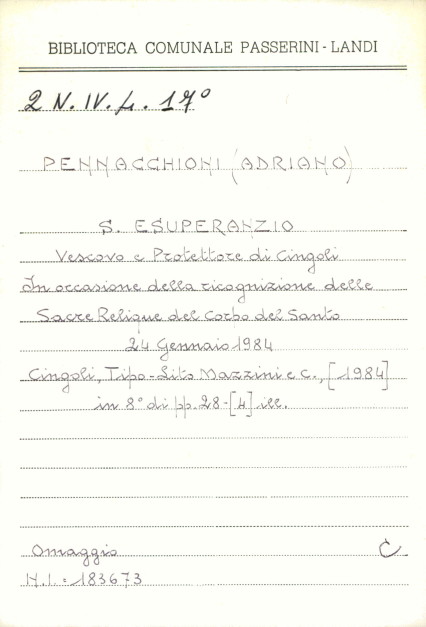 BIBLIOTECA COMUNALE PASSERINI - LANDI
2 N. IV. L. 17°
PENNACCHIONI (ADRIANO)
S. ESUPERANZIO
Vescovo e Protettore di Cingoli
In occasione della ricognizione delle
Sacre Relique del Corpo del Santo
24 Gennaio 1984
Cingoli, Tipo-Lito Mazzini e C., [1984]
in 8° di pp. 28-[4] ill.
Omaggio C
N.I. = 183673